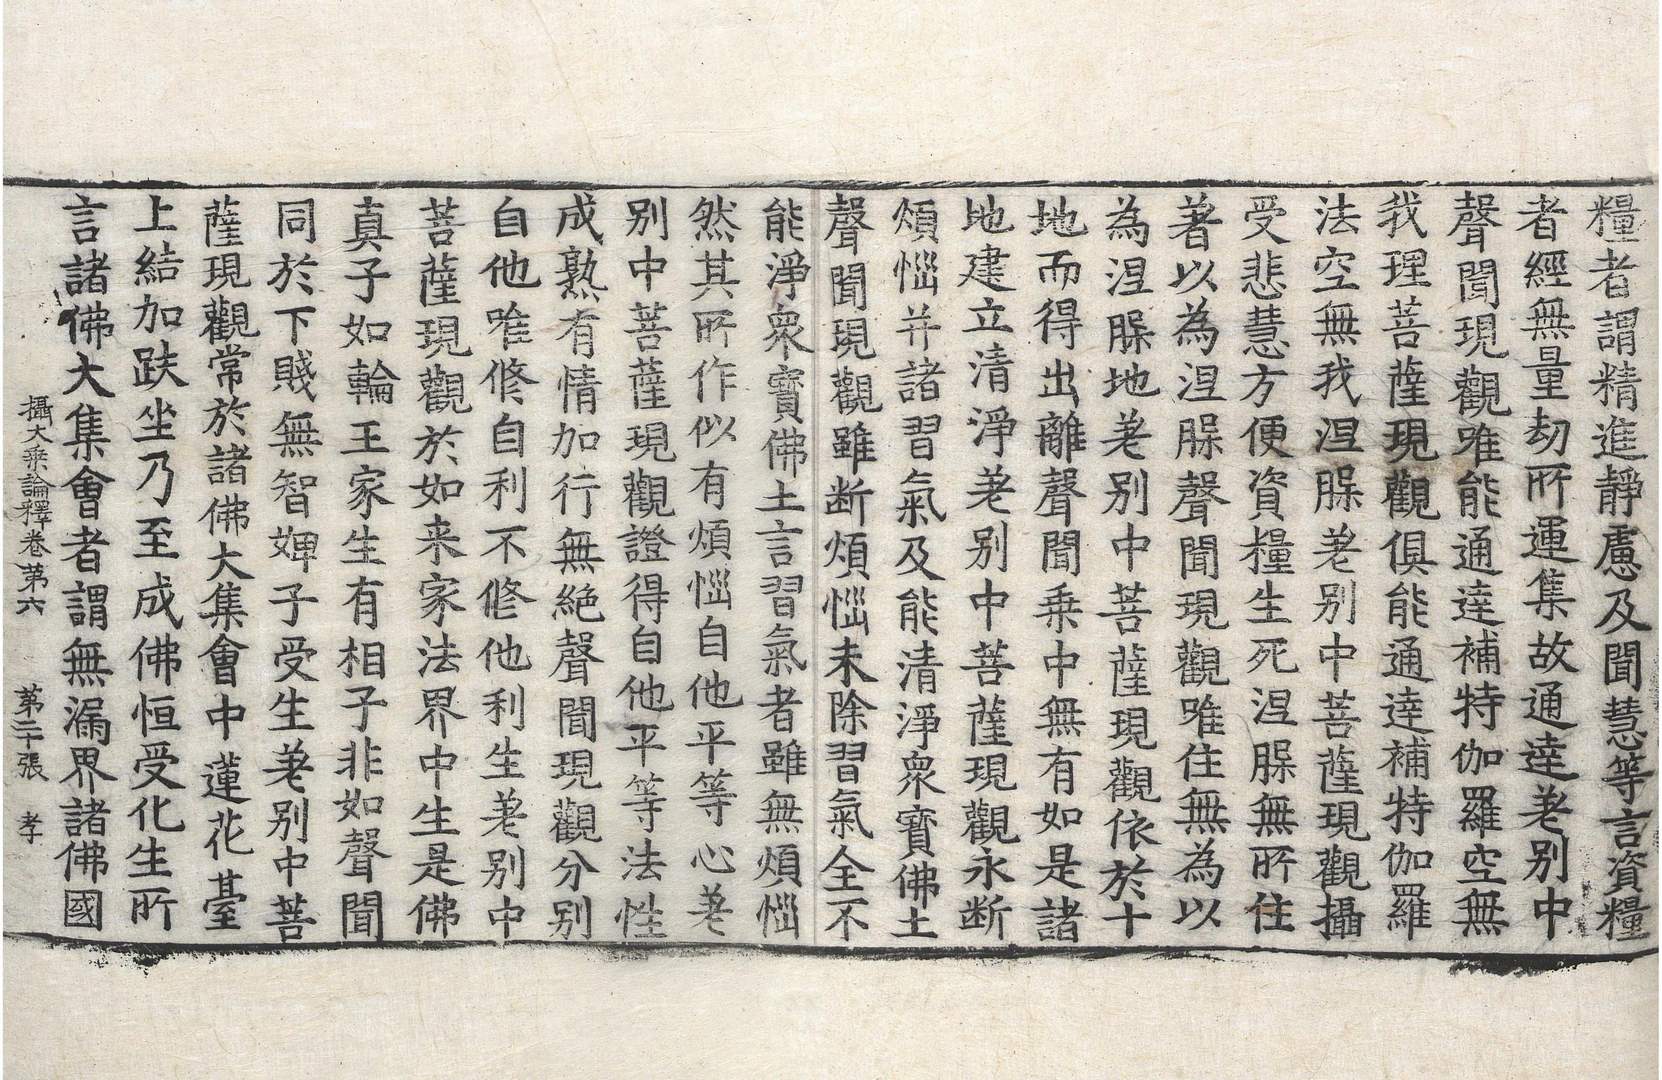 糧者謂精進靜慮及聞慧等言資糧
者經無量劫所運集故通達差別中
聲聞現觀唯能通達補特伽羅空無
我理菩薩現觀俱能通達補特伽羅
法空無我涅槃差別中菩薩現觀攝
受悲慧方便資糧生死涅槃無所住
著以為涅槃聲聞現觀唯住無為以
為涅槃地差別中菩薩現觀依於十
地而得出離聲聞乘中無有如是諸
地建立清淨差別中菩薩現觀永斷
煩惱并諸習氣及能清淨衆寶佛土
聲聞現觀雖斷煩惱未除習氣全不
能淨衆寶佛土言習氣者雖無煩惱
然其所作似有煩惱自他平等心差
別中菩薩現觀證得自他平等法性
成熟有情加行無絶聲聞現觀分別
自他唯修自利不修他利生差別中
菩薩現觀於如来家法界中生是佛
真子如輪王家生有相子非如聲聞
同於下賤無智婢子受生差別中菩
薩現觀常於諸佛大集會中蓮花臺
上結加趺坐乃至成佛恒受化生所
言諸佛大集會者謂無漏界諸佛國
攝大乘論釋卷第六　第二十張　孝